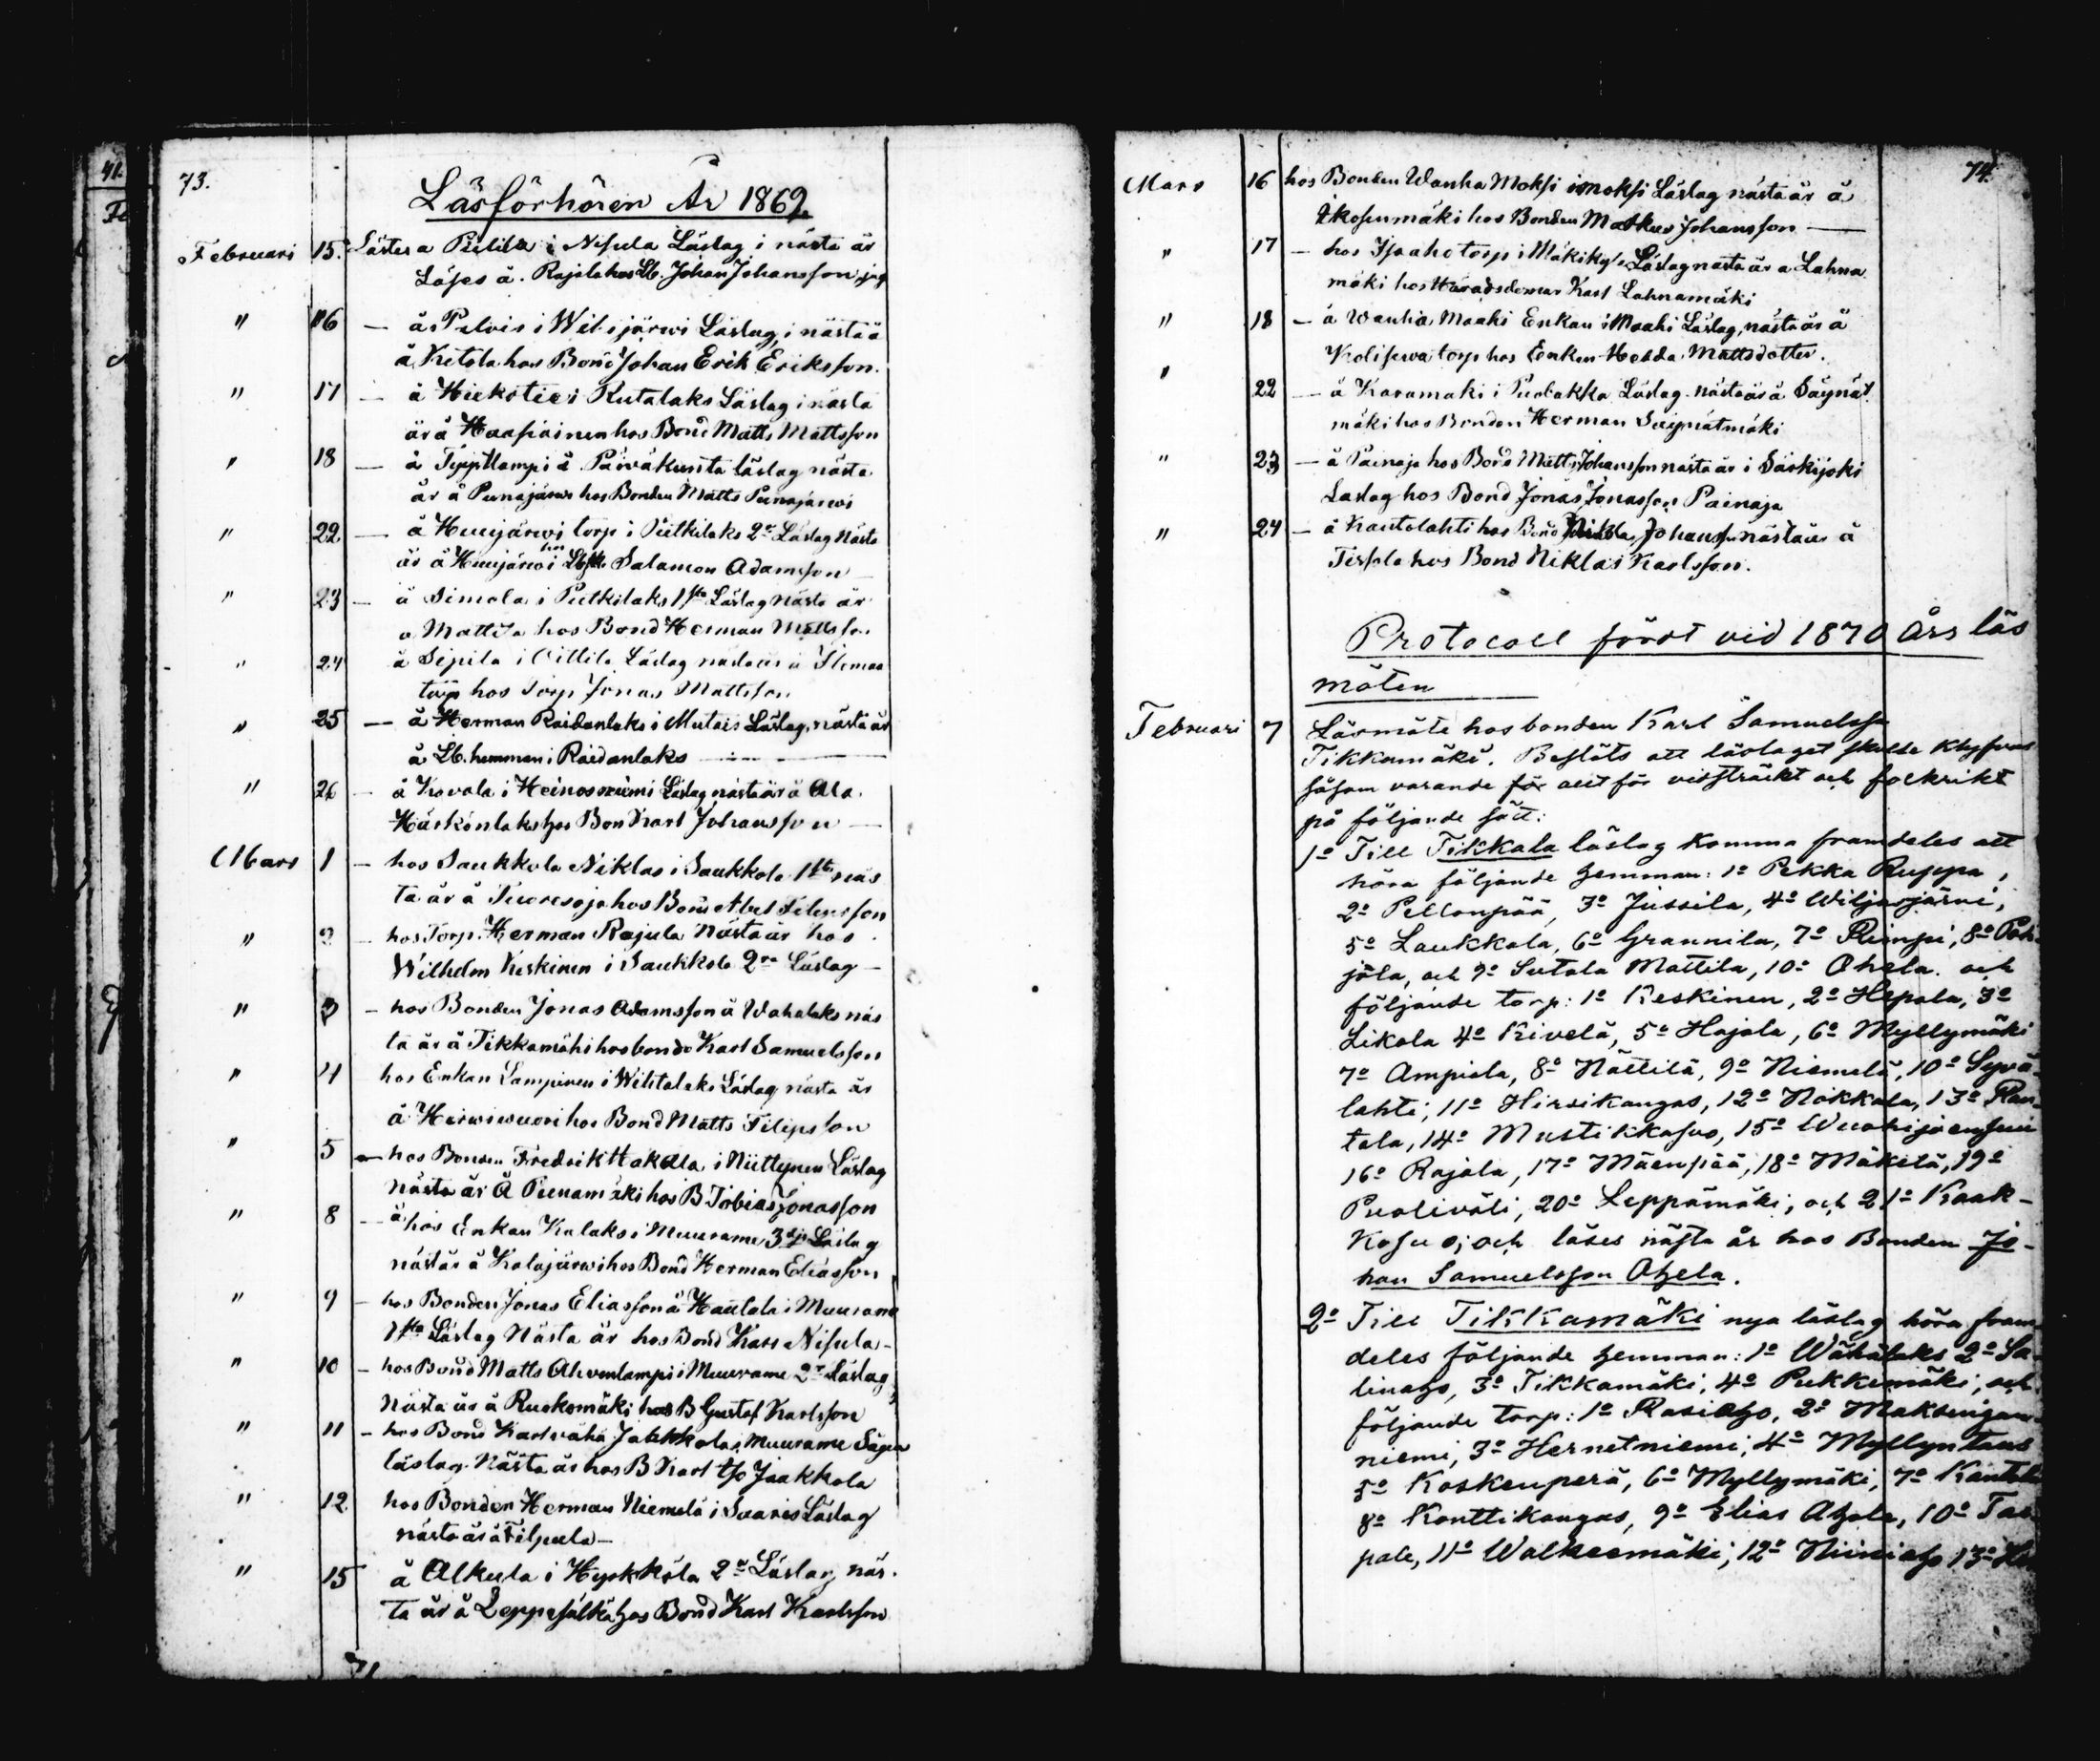 73.
Läsförhören År 1869.
Februari 15. Lästes a i Nisula Läslag i nästa år
Läses å Rajala hos Lb. Johan Johansson
" 16 — å Pelvis i Wilsjärwi Läslag, i nästa å
å Ketola hos Bond Johan Erik Eriksson.
" 17 — å Hiekotie i Rutalaks Läslag i nästa
år å Haapiainen hos Bond Matts Mattsson
" 18 — å lampi å Päiväkunta läslag nästa
år å Punajärwi hos Bonden Matts Punajärwi
" 22 — å torp i Putkilaks 2a Läslag Nästa
år å hos Salamon Adamsson
" 23 — å Simola i Putkilaks 1sta Läslag Nästa år
a Mattila hos Bond Herman Mattsson
" 24 å Sipila i Läslag nästa år a
torp hos Torp Jonas Mattsson
" 25 — å Herman Raidanlaks i Mutais Läslag, nästa år
å Lb. hemman i Raidanlaks
" 26 — å Kovala i Heinosniemi Läslag nästa år å Ala
Häskönlaks hos Bon Karl Johansson —
Mars 1 — hos Saukkola Niklas i Saukkola 1sta näs
ta år å hos Bond Abel
" 2 — hos Torp. Herman Rajula Nästa år hos
Wilhelm Keskinen i Saukkola 2ra Läslag —
" 3 — hos Bonden Jonas Adamsson å Wahalaks näs
ta år å Tikkamäki hos bonde Karl Samuelsson
" 4 hos Enkan Lampinen i Läslag nästa år
å Hirwiwuori hos Bond Matts Filipsson
" 5 — hos Bonden Fredrik Hakola i Niittynen Läslag
Nästa år Å Pienamäki hos B Tobias Jonasson
" 8 — å hos Enkan Kalaks i Muurame 3dje Läslag
nästa år å Kalajärwi hos Bond Herman Eliasson
" 9 — hos Bonden Jonas Eliasson å Hautala i Muurame
1sta Läslag Nästa år hos Bond Karl Nisula —
" 10 — hos Bond Matts Ahvenlampi i Muurame 2r Läslag
Nästa år å Ruokomäki hos B Gustaf Karlsson
" 11 — hos Bond Karl vähä Jakkola, Muurame Sägen
läslag. Nästa år hos B Karl Jaakkola
" 12 hos Bonden Herman Niemelä i Saaris Läslag
nästa år å Filpula —
" 15 å Alkula i Hyökkälä 2a Läslag näs.
ta år å Leppesälkä hos Bond Karl Karlsson
74.
Mars 16 hos Bonden Wanha Moksi i moksi Läslag nästa år å
Ikosenmäki hos Bonden Markus Johansson —
" 17 — hos Isoaho torp i Mäkikylä Läslag nasta år a Lahna
mäki hos Häradsdomar Karl Lahnamäki
" 18 — å Wanha Maahi Enkan i Maahi Läslag, nästa år å
Kolisewa torp hos Enken Hedda Mattsdotter.
" 22 — å Karamaki i Puolakka Läslag nästa år å Säynät
mäki hos Bonden Herman Säynätmäki
" 23 — å Painaja hos Bond Matts Johansson nästa år i Säskijoki
Laslag hos Bond Jonas Jonasson Painaja
" 24 — å Kautolahti hos Bond Niklas Johansson nästa år å
Tirsola hos Bond Niklas Karlsson.
Protocoll fördt vid 1870 Års läs
möten
Februari 7 Läsmöte hos bonden Karl Samuelsso
Tikkamäki. Beslöts att läslaget skulle klyfvas
såsom varande för allt för vidsträckt och folkrikt
på följande sätt:
1o Till Tikkala läslag komma framdeles att
höra följande hemman: 1o Pekka Ruppa,
2o Pellonpää, 3o Jussila, 4o Wiljasjärvi,
5o Laukkala, 6o Grannila, 7o Rimpi, 8o Poh-
jola, och 9o Sutala Mattila, 10o Ahola. och
följande torp: 1o Keskinen, 2o Hepola, 3o
Likola 4o Kivelä, 5o Hajala, 6o Myllymäki
7o Ampiala, 8o Nättilä, 9o Niemelä, 10o Syvä-
lahti, 11o Hirsikangas, 12o Nokkala, 13o Ran-
tala, 14o Mustikkasuo, 15o Wuohijoensuu
16o Rajala, 17o Mäenpää, 18o Mäkelä, 19o
Puoliväli, 20o Leppämäki, och 21o Kaak-
kosuo; och läses nästa år hos Bonden Jo-
han Samuelsson Ahola.
2o Till Tikkamäki nya läslag höra fram-
deles följande hemman: 1o Wähälaks 2o Sa-
linaho, 3o Tikkamäki, 4o Pukkimäki, och
följande torp: 1o Rasiaho, 2o
niemi, 3o Hernetniemi, 4o Myllyntaus
5o Koskenperä, 6o Myllymäki, 7o Kantola
8o Konttikangas, 9o Elias Ahola, 10o Tas
pale, 11o Walkeemäki, 12o Niiniaho 13o